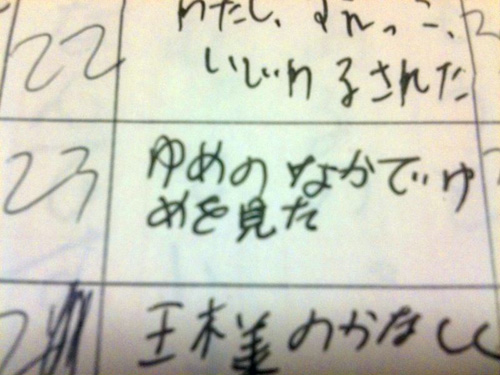 22
いじわるされた
23
ゆめのなかでゆ
めを見た
王様のかなし